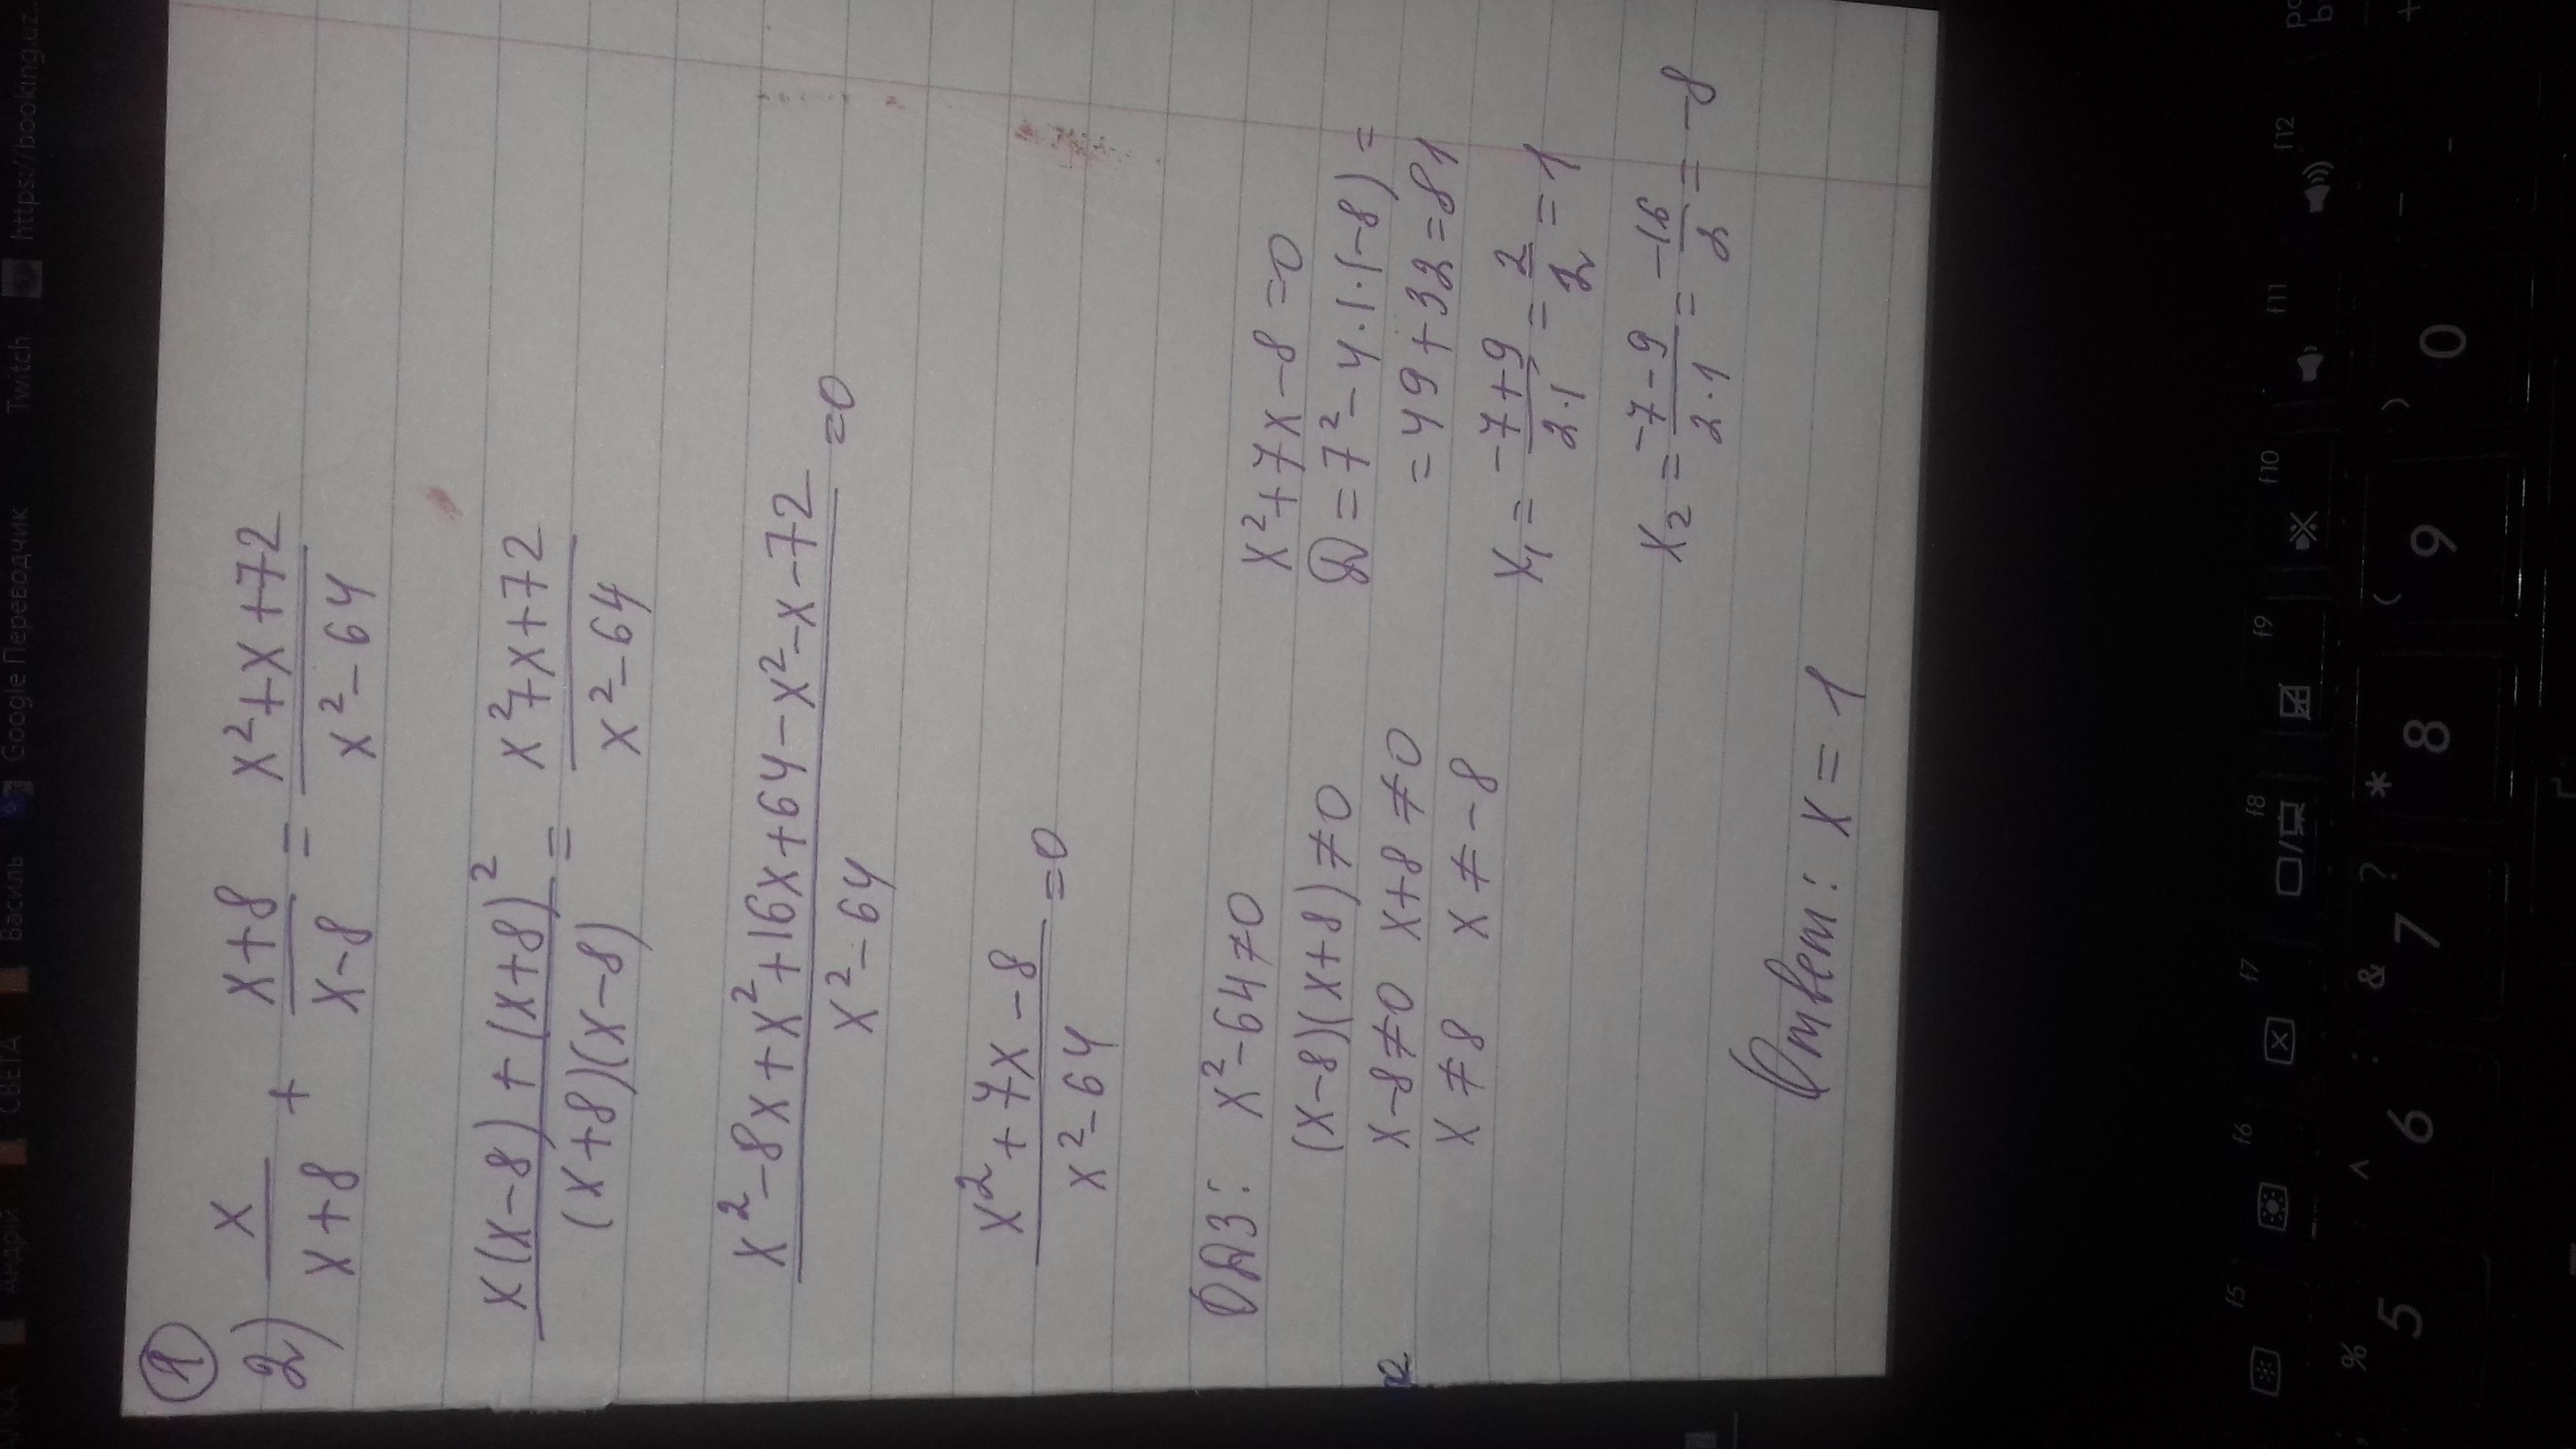 1
2) x/(x+8) + (x+8)/(x-8) = (x²+x+72)/(x²-64)
(x(x-8)+(x+8)²)/((x+8)(x-8)) = (x²+x+72)/(x²-64)
(x²-8x+x²+16x+64-x²-x-72)/(x²-64) =0
(x²+7x-8)/(x²-64) =0
ОДЗ: x²-64≠0
(x-8)(x+8)≠0
x-8≠0 x+8≠0
x≠8 x≠-8
x²+7x-8=0
D=7²-4·1·(-8)=
=49+32=81
x₁=(-7+9)/(2·1)=2/2=1
x₂=(-7-9)/(2·1)=-16/2=-8
Ответ: x=1
СВЕТА
Василь
Google Переводчик
Twitch
https://booking.uz...
f5
f6
f7
f8
f9
f10
f11
f12
%
5
^
6
:
&
7
?
*
8
(
9
)
0
_
-
+